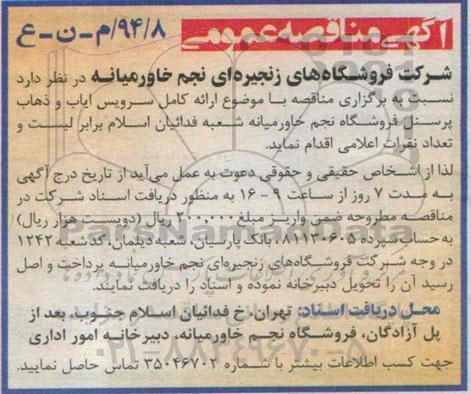 آگهی مناقصه عمومی ۹۴/۸/م-ن-ع
شرکت فروشگاه‌های زنجیره‌ای نجم خاورمیانه در نظر دارد
نسبت به برگزاری مناقصه با موضوع ارائه کامل سرویس ایاب و ذهاب
پرسنل فروشگاه نجم خاورمیانه شعبه فدائیان اسلام برابر لیست و
تعداد نفرات اعلامی اقدام نماید.
لذا از اشخاص حقیقی و حقوقی دعوت به عمل می‌آید از تاریخ درج آگهی
به مدت ۷ روز از ساعت ۹ - ۱۶ به منظور دریافت اسناد شرکت در
مناقصه مطروحه ضمن واریز مبلغ ۲۰۰,۰۰۰ ریال (دویست هزار ریال)
به حساب سپرده ۸۱۱۳۰۶۰۵، بانک پارسیان، شعبه دیلمان، کدشعبه ۱۲۴۲
در وجه شرکت فروشگاه‌های زنجیره‌ای نجم خاورمیانه پرداخت و اصل
رسید آن را تحویل دبیرخانه نموده و اسناد را دریافت نمایند.
محل دریافت اسناد: تهران، خ فدائیان اسلام جنوب، بعد از
پل آزادگان، فروشگاه نجم خاورمیانه، دبیرخانه امور اداری
جهت کسب اطلاعات بیشتر با شماره ۳۵۰۴۶۷۰۲ تماس حاصل نمایید.
ParsNamadData
۰۲۱-۸۸۳۴۹۶۷۰-۸